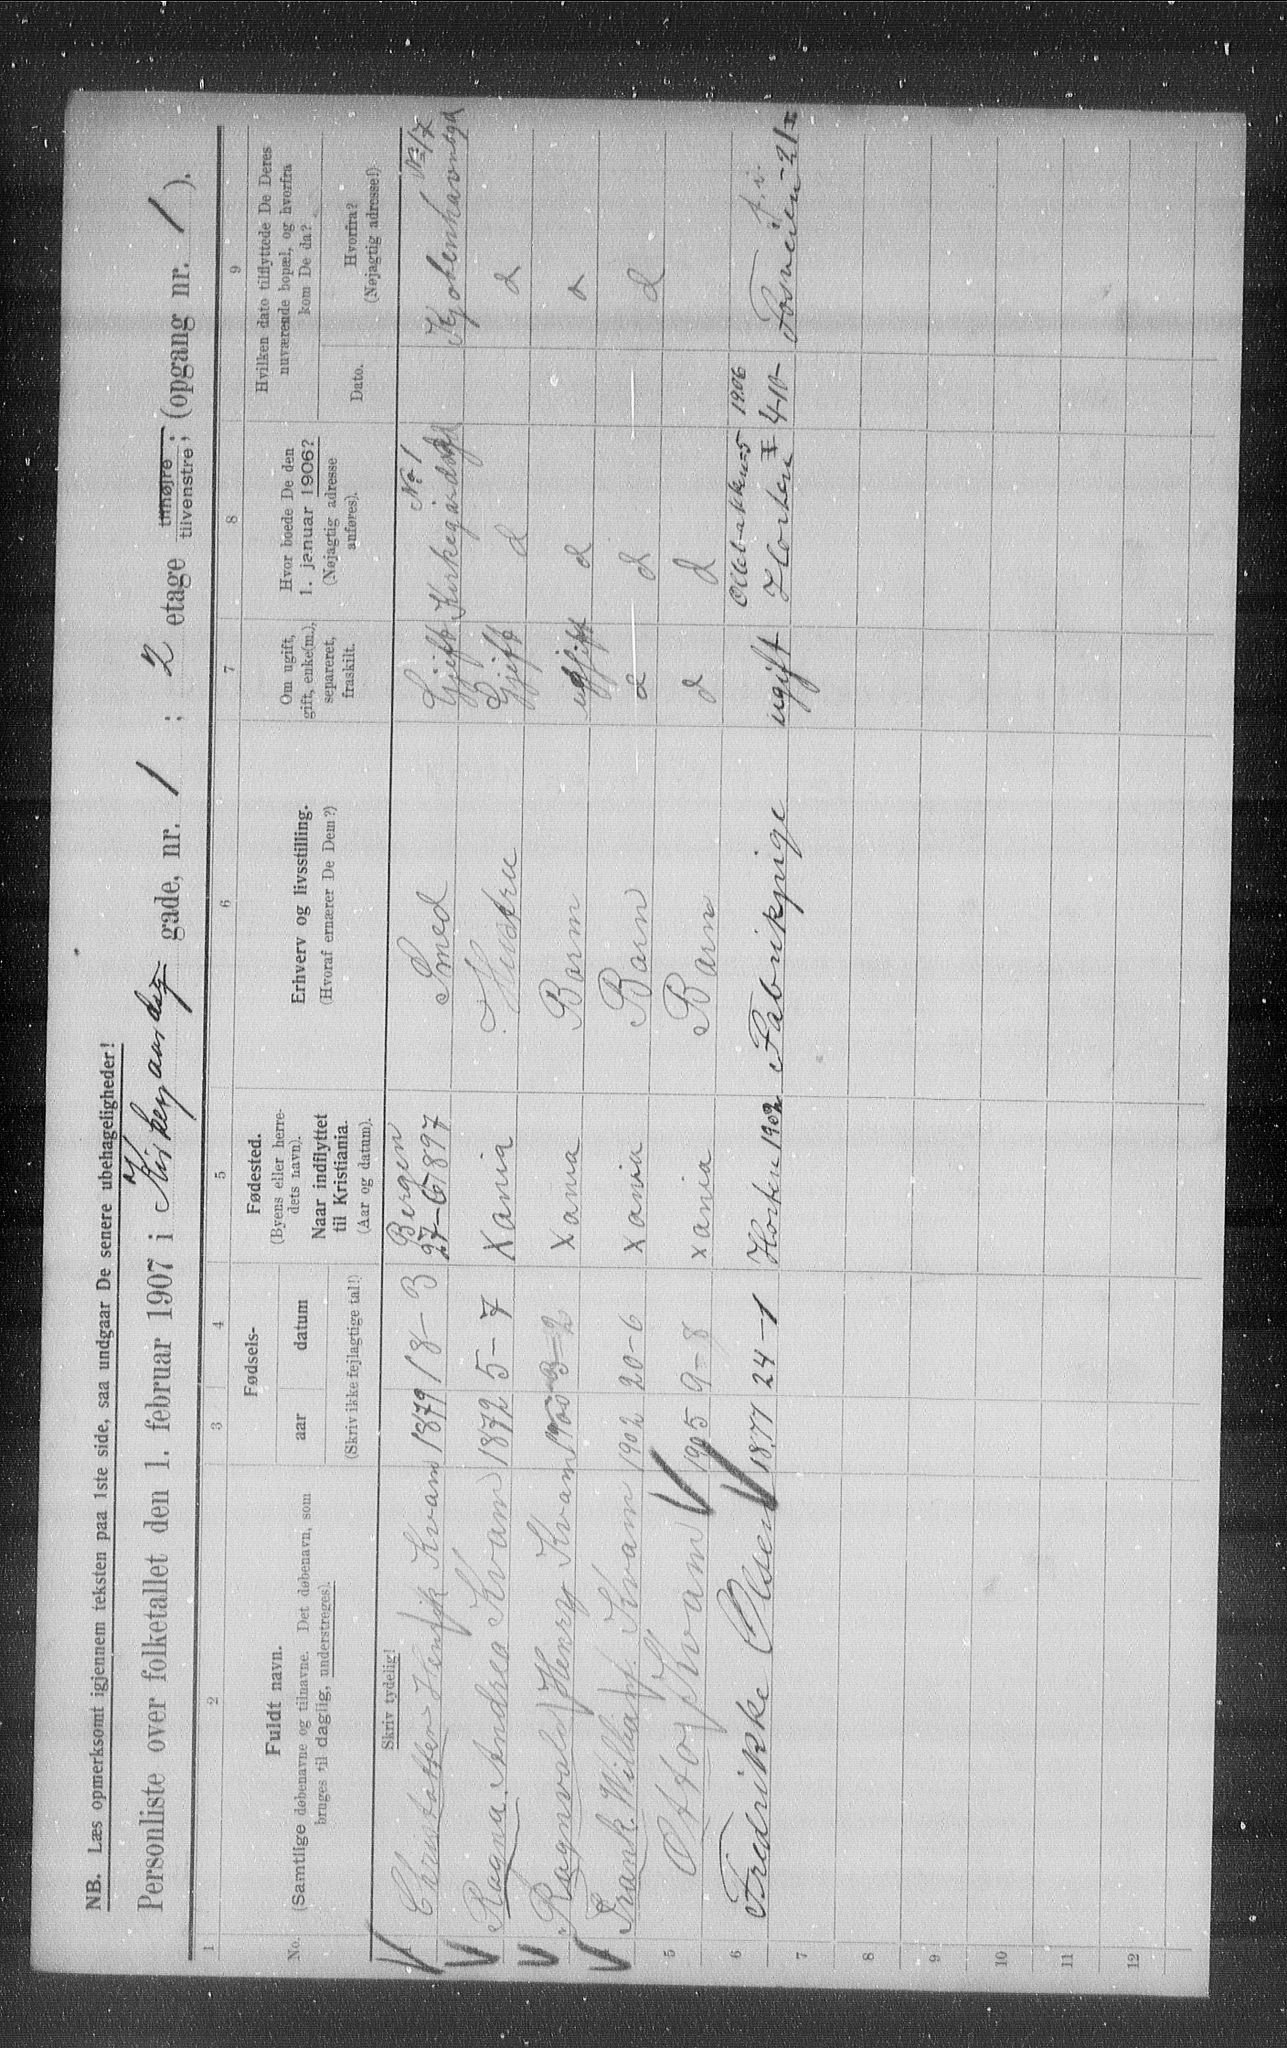 NB. Læs opmerksomt igjennem teksten paa 1ste side, saa undgaar De senere ubehageligheder!
Personliste over folketallet den 1. februar 1907 i Kirkegaardsg gade, nr. 1 ; 2 etage tilhøjre tilvenstre; (opgang nr. 1 ).
1 2 3 4 5 6 7 8 9
No.
Fuldt navn.
(Samtlige døbenavne og tilnavne. Det døbenavn, som
bruges til daglig, understreges).
Fødsels-
aar datum
(Skriv ikke fejlagtige tal!)
Fødested.
(Byens eller herre-
dets navn).
Naar indflyttet
til Kristiania.
(Aar og datum).
Erhverv og livsstilling.
(Hvoraf ernærer De Dem?)
Om ugift,
gift, enke(m.),
separeret,
fraskilt.
Hvor boede De den
1. januar 1906?
(Nøjagtig adresse
anføres).
Hvilken dato tilflyttede De Deres
nuværende bopæl, og hvorfra
kom De da?
Dato.
Hvorfra?
(Nøjagtig adresse!)
Skriv tydelig!
Christoffer Henrik Kvam 1879 18-3 Bergen 27-6 1897 Smed Gjift Kirkegårdsgt No 1 Kjøbenhavnsgd No 17
Ragna Andrea Kvam 1872 5-7 Xania Hustru Gjift d d
Ragnvald Henry Kvam 1900 3-2 Xania Barn ugift d d
Frank William Kvam 1902 20-6 Xania Barn d d d
5 Otto Kvam 1905 9-8 Xania Barn d d
6 Fredrikke Olsen 1877 24-1 Horten 1902 Fabrikpige ugift Horten 1906 4-10
7
8
9
10
11
12